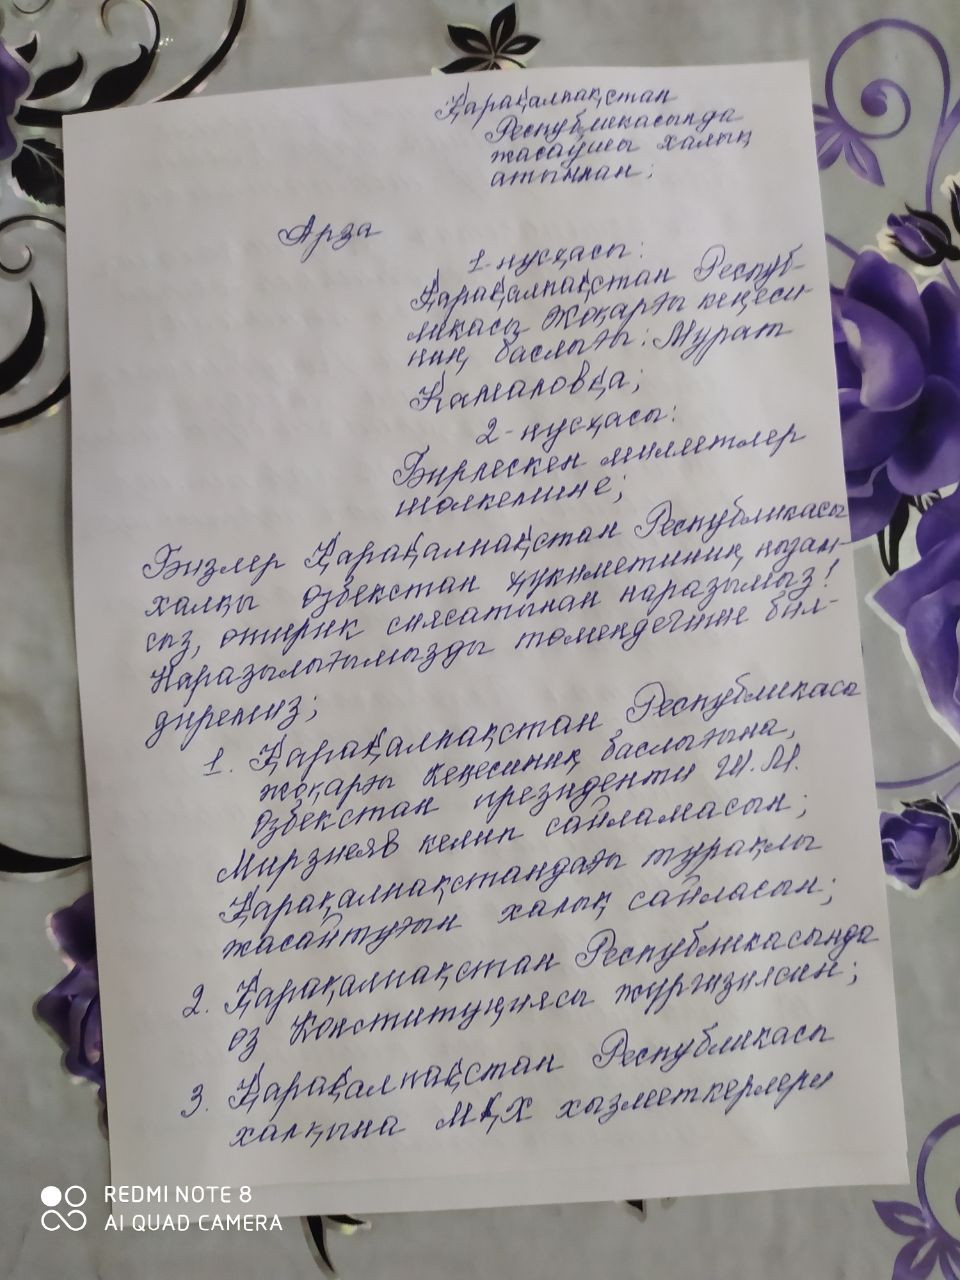 Қарақалпақстан
Республикасында
жасаўшы халық
атыннан;
Арза
1-нусқасы:
Қарақалпақстан Респуб-
ликасы Жоқарғы кеңеси-
ниң баслығы: Мурат
Камаловқа;
2-нусқасы:
Бирлескен миллетлер
шолкемине;
Бизлер Қарақалпақстан Республикасы
халқы озбекстан ҳукиметиниң нызам-
сыз, отирик сиясатынан наразымыз!
Наразылығымызды томендегише бил-
диремиз;
1. Қарақалпақстан Республикасы
жоқарғы кеңесиниң баслығына,
Озбекстан президенти Ш.М.
Мирзиеяв келип сайламасын;
Қарақалпақстандағы турақлы
жасайтуғын халық сайласын;
2. Қарақалпақстан Республикасында
оз Конституциясы жургизилсин;
3. Қарақалпақстан Республикасы
халқына МҚХ хызметкерлери
REDMI NOTE 8
AI QUAD CAMERA